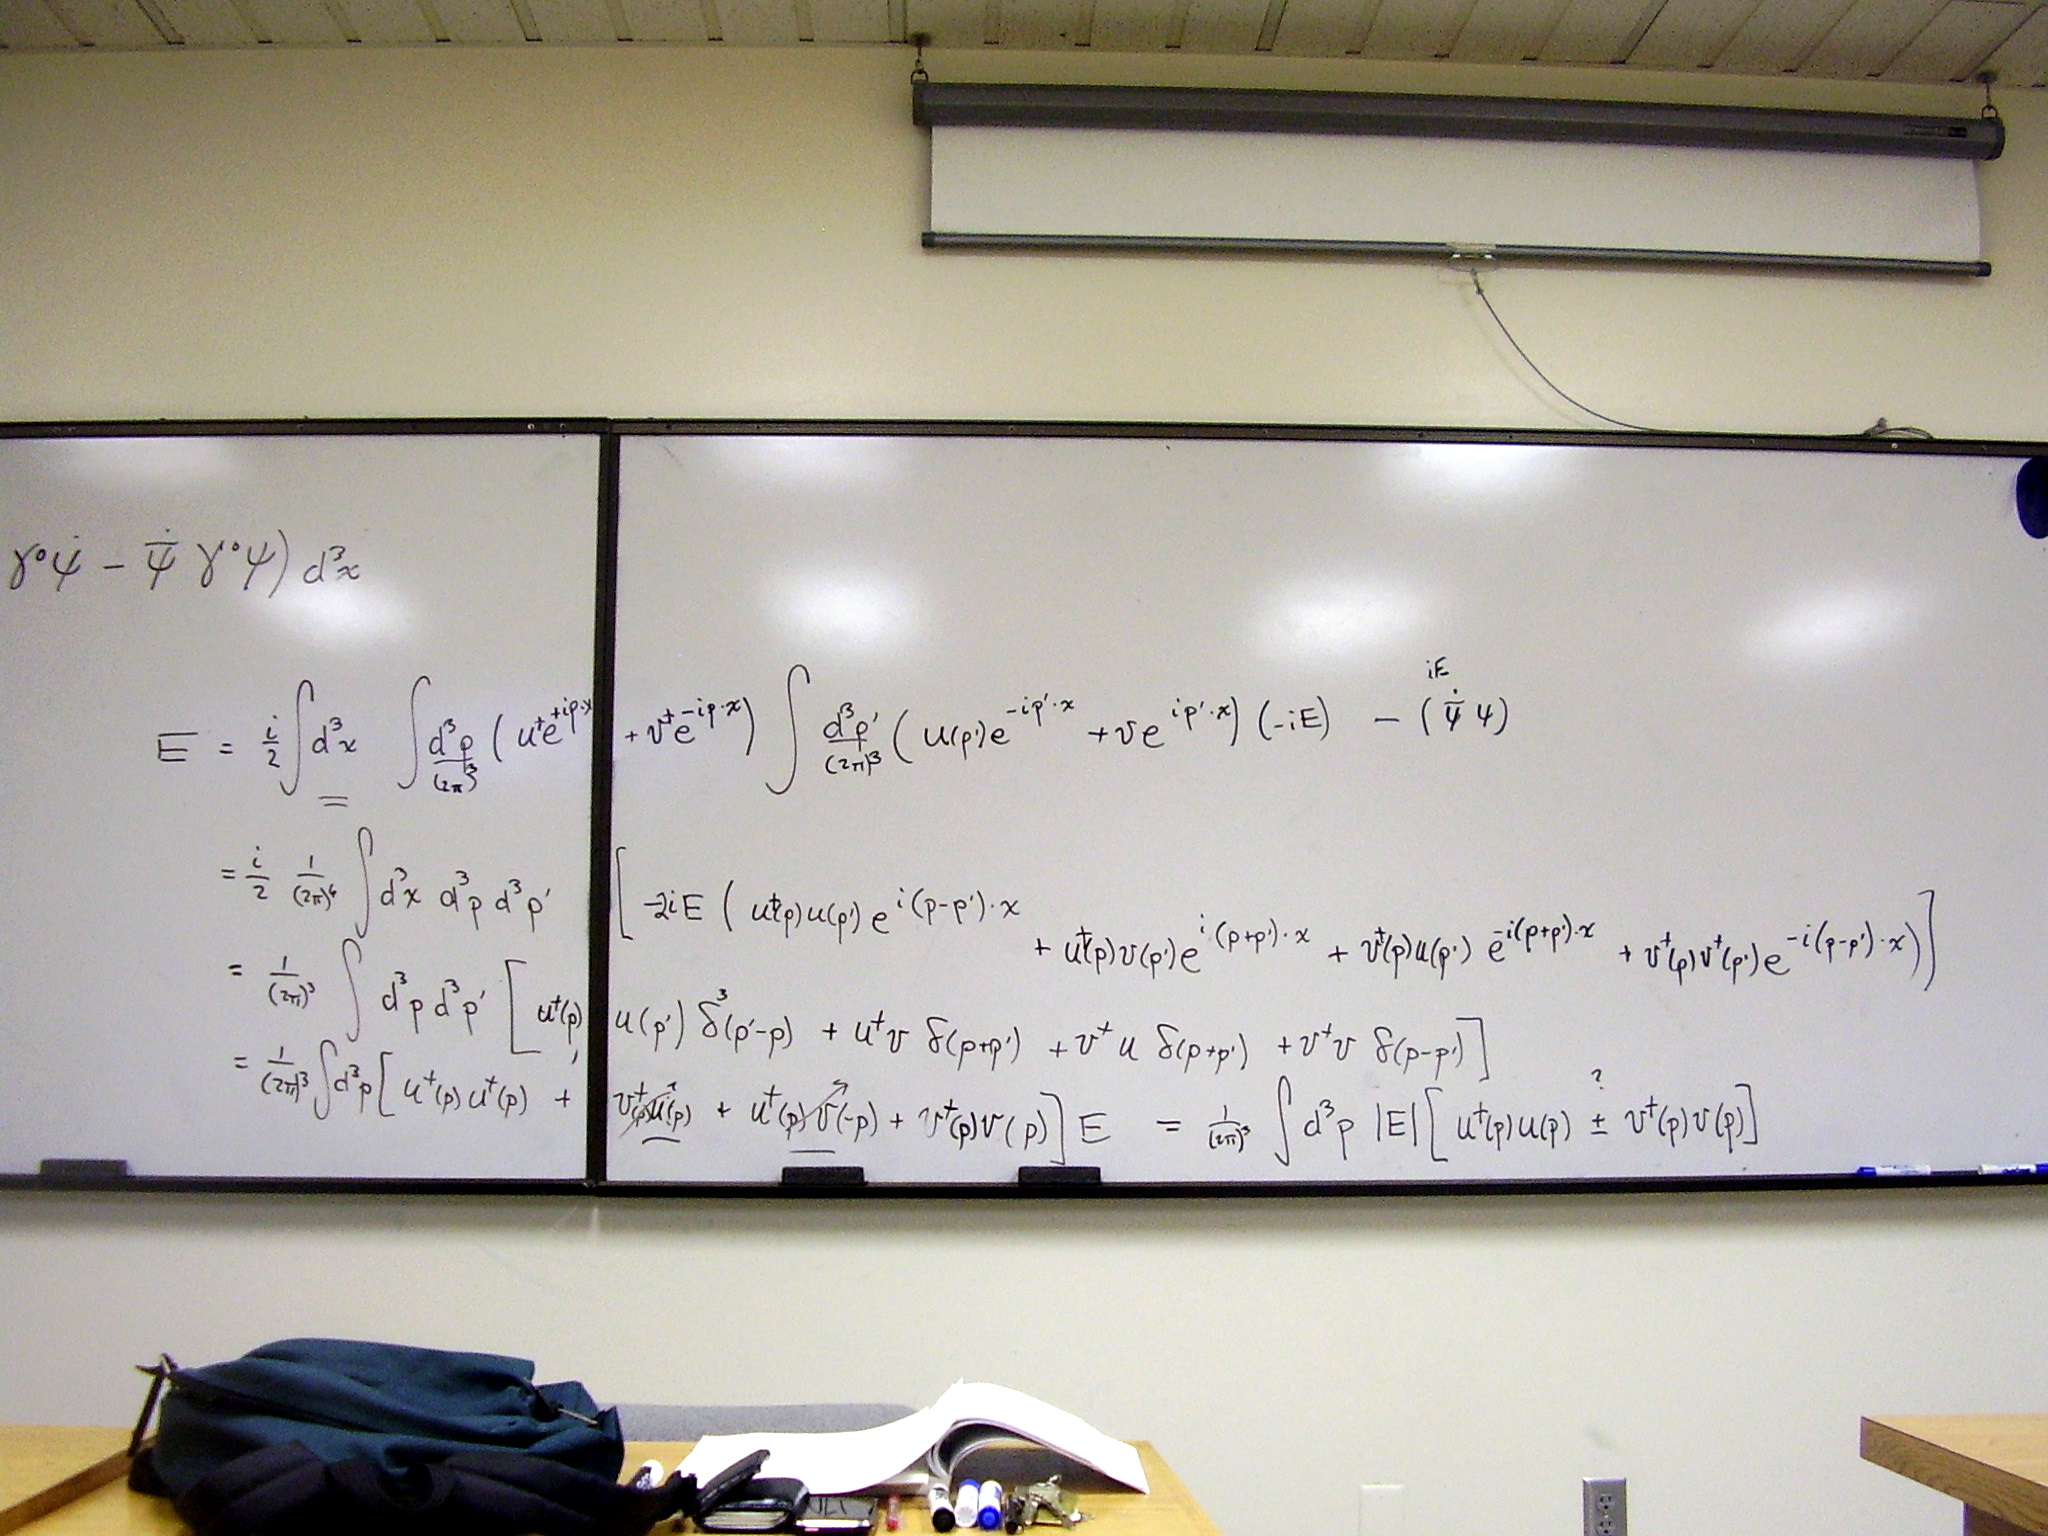 γ⁰ψ̇ − ψ̄̇ γ⁰ψ) d³x
iE
E = i/2 ∫ d³x ∫ d³p/(2π)³ (u⁺e^{+ip·x} + v⁺e^{−ip·x}) ∫ d³p'/(2π)³ (u(p')e^{−ip'·x} + ve^{ip'·x}) (−iE) − (ψ̄̇ ψ)
= i/2 1/(2π)⁶ ∫ d³x d³p d³p' [−2iE (u⁺(p)u(p') e^{i(p−p')·x} + u⁺(p)v(p')e^{i(p+p')·x} + v⁺(p)u(p') e^{−i(p+p')·x} + v⁺(p)v⁺(p')e^{−i(p−p')·x})]
= 1/(2π)³ ∫ d³p d³p' [u⁺(p) u(p') δ³(p'−p) + u⁺v δ(p+p') + v⁺u δ(p+p') + v⁺v δ(p−p')]
= 1/(2π)³ ∫ d³p [u⁺(p)u⁺(p) + v⁺(p)u(p) + u⁺(p)v(−p) + v⁺(p)v(p)] E = 1/(2π)³ ∫ d³p |E| [u⁺(p)u(p) ± v⁺(p)v(p)]
?